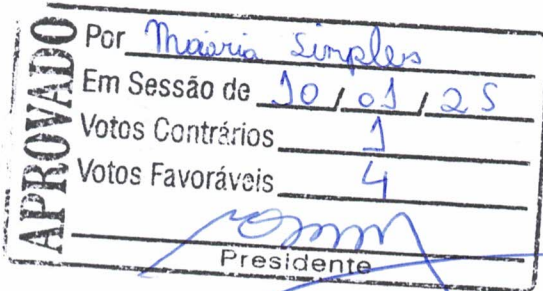 APROVADO
Por Maioria Simples
Em Sessão de 10 / 01 / 25
Votos Contrários 1
Votos Favoráveis 4
Presidente